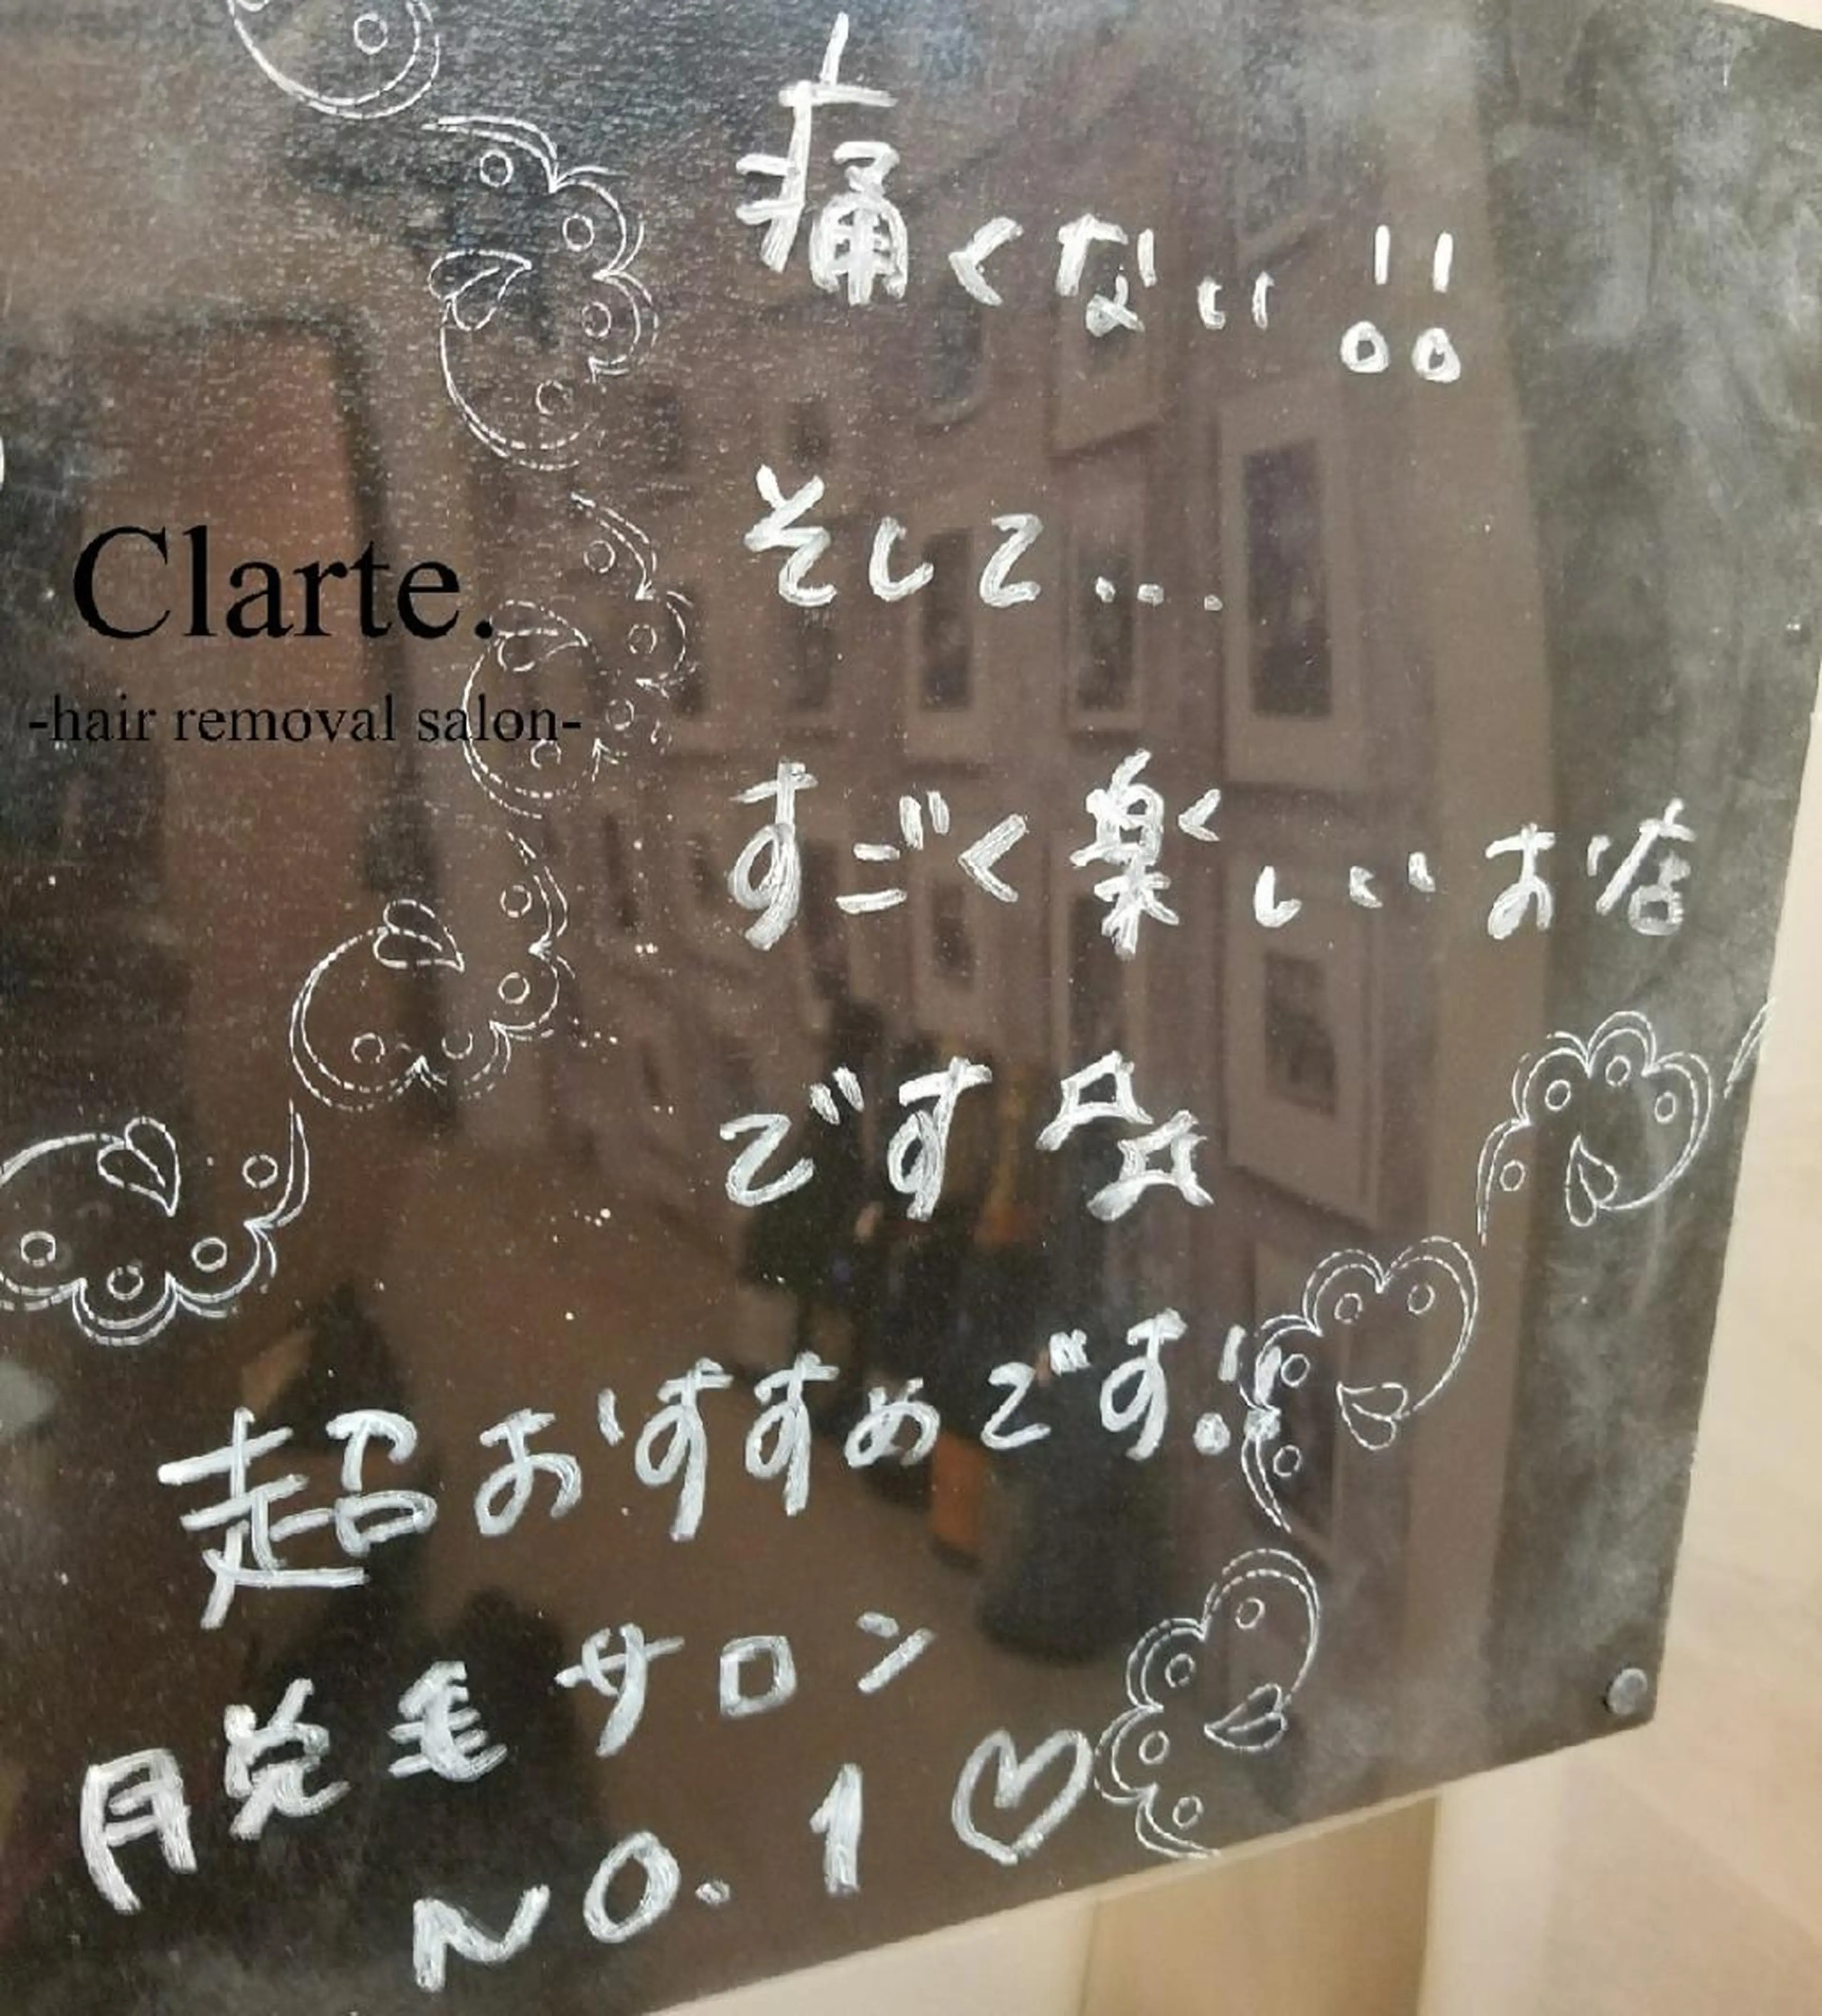 痛くない!!
そして...
すごく楽しいお店
です☆☆
Clarte.
-hair removal salon-
超おすすめです!!
脱毛サロン
NO.1♡